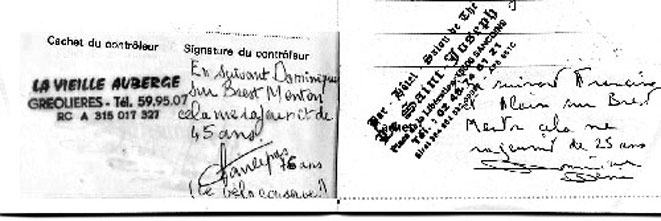 Cachet du contrôleur
Signature du contrôleur
LA VIEILLE AUBERGE
GREOLIERES - Tél. 59.95.07
RC A 315 017 327
En suivant Dominique
sur Brest Menton
cela me rajeunit de
45 ans
76 ans
(le vélo conserve!)
Bar - Hôtel Salon de Thé
Le Saint Joseph
suivant Francine
et Alain sur Brest
Menton cela me
rajeunit de 25 ans